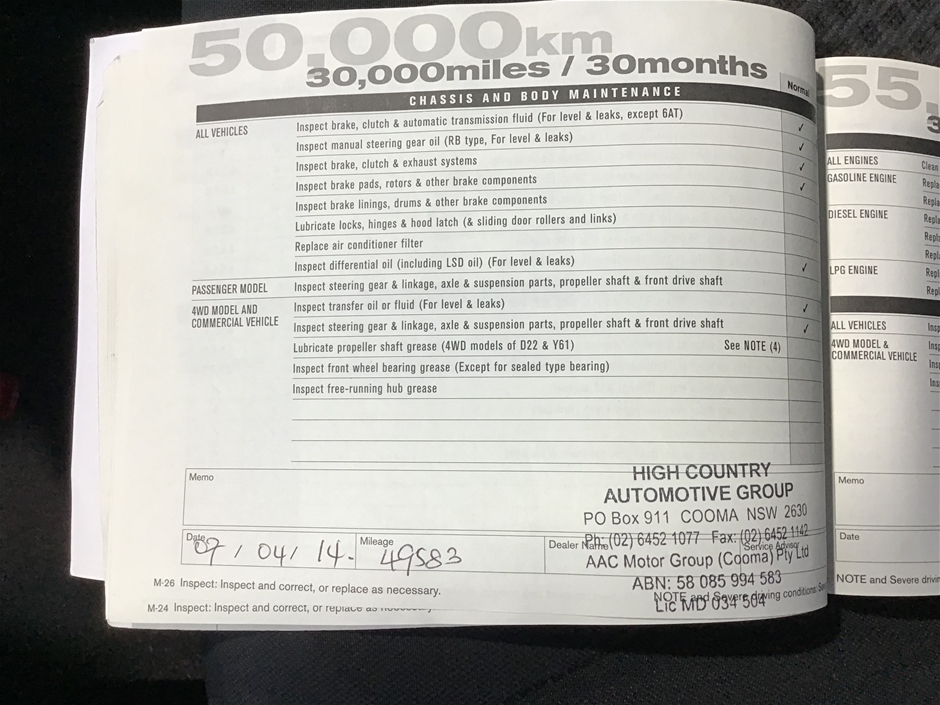 50,000km
30,000miles / 30months
CHASSIS AND BODY MAINTENANCE
Normal
ALL VEHICLES
Inspect brake, clutch & automatic transmission fluid (For level & leaks, except 6AT) ✓
Inspect manual steering gear oil (RB type, For level & leaks) ✓
Inspect brake, clutch & exhaust systems ✓
Inspect brake pads, rotors & other brake components ✓
Inspect brake linings, drums & other brake components
Lubricate locks, hinges & hood latch (& sliding door rollers and links)
Replace air conditioner filter
Inspect differential oil (including LSD oil) (For level & leaks) ✓
PASSENGER MODEL Inspect steering gear & linkage, axle & suspension parts, propeller shaft & front drive shaft
4WD MODEL AND
COMMERCIAL VEHICLE
Inspect transfer oil or fluid (For level & leaks) ✓
Inspect steering gear & linkage, axle & suspension parts, propeller shaft & front drive shaft ✓
Lubricate propeller shaft grease (4WD models of D22 & Y61) See NOTE (4)
Inspect front wheel bearing grease (Except for sealed type bearing)
Inspect free-running hub grease
Memo
HIGH COUNTRY
AUTOMOTIVE GROUP
PO Box 911 COOMA NSW 2630
Ph: (02) 6452 1077 Fax: (02) 6452 1142
AAC Motor Group (Cooma) Pty Ltd
ABN: 58 085 994 583
Lic MD 034 504
Date 07 / 04 / 14 Mileage 49583
Dealer Name Service Advisor
M-26 Inspect: Inspect and correct, or replace as necessary.
NOTE and Severe driving conditions:
M-24 Inspect: Inspect and correct, or replace as necessary.
55,
ALL ENGINES Clean
GASOLINE ENGINE
DIESEL ENGINE
LPG ENGINE
ALL VEHICLES
4WD MODEL &
COMMERCIAL VEHICLE
Memo
Date
NOTE and Severe